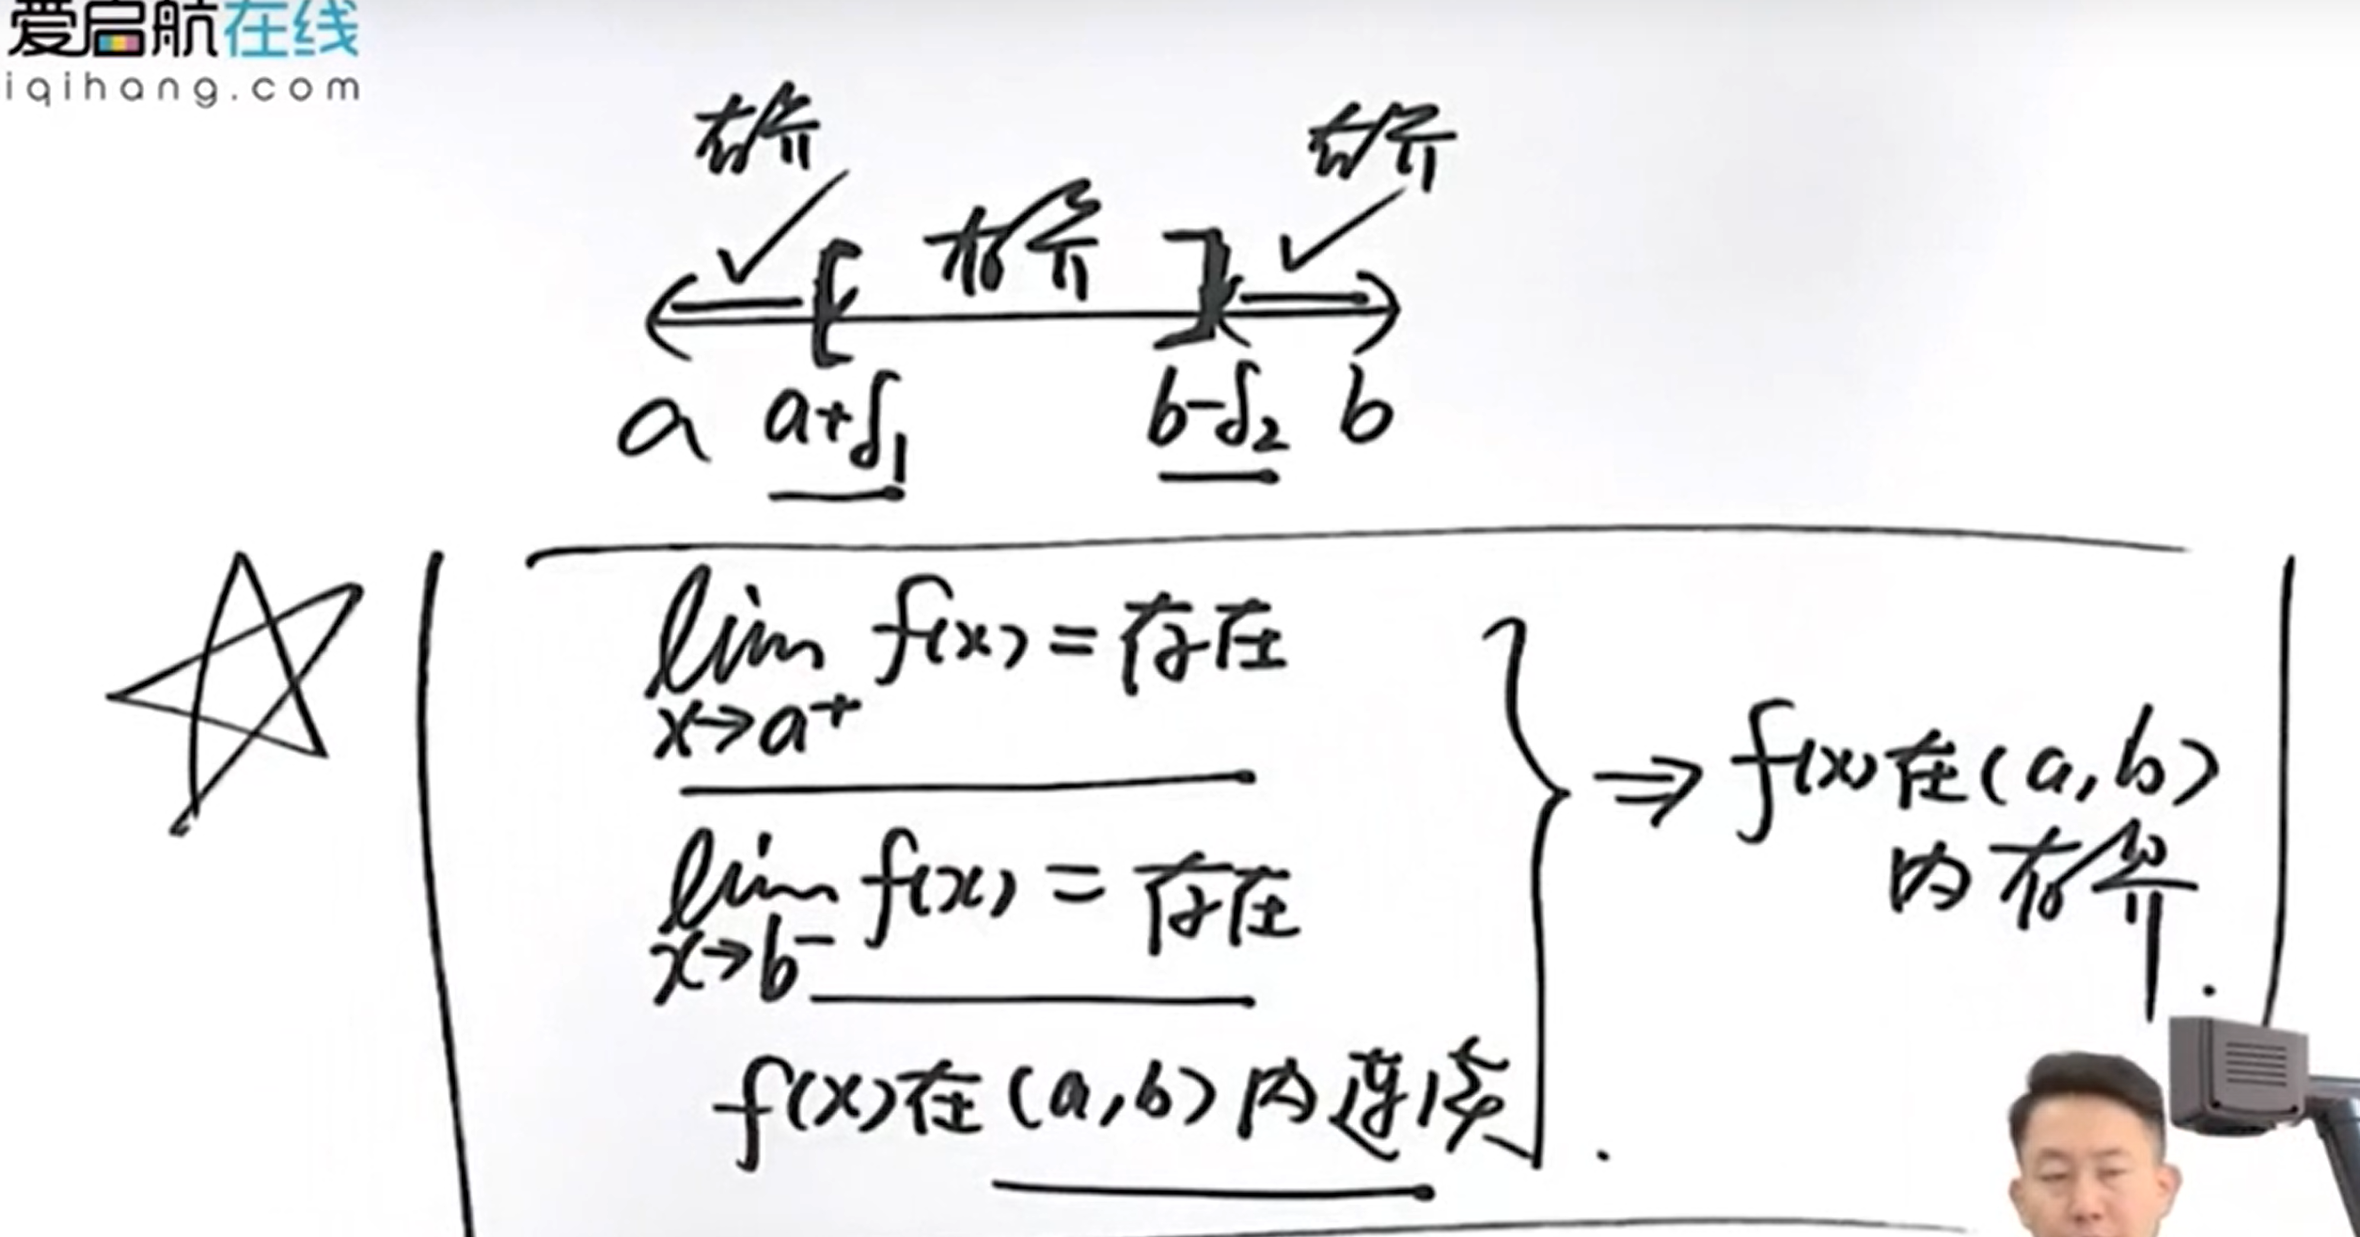 爱启航在线
iqihang.com
有界 有界
有界
a a+δ₁ b-δ₂ b
lim f(x) = 存在
x→a⁺
lim f(x) = 存在
x→b⁻
f(x)在(a,b)内连续.
⇒ f(x)在(a,b)
内有界.